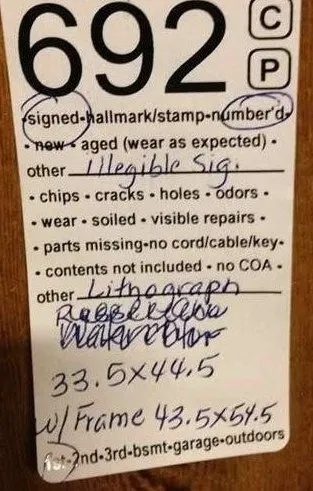 692 C
P
•signed•hallmark/stamp•number'd•
• new • aged (wear as expected) •
other Illegible Sig.
• chips • cracks • holes • odors •
• wear • soiled • visible repairs •
• parts missing•no cord/cable/key•
• contents not included • no COA •
other Lithograph
Watercolor
33.5x44.5
w/ Frame 43.5x54.5
1st•2nd•3rd•bsmt•garage•outdoors